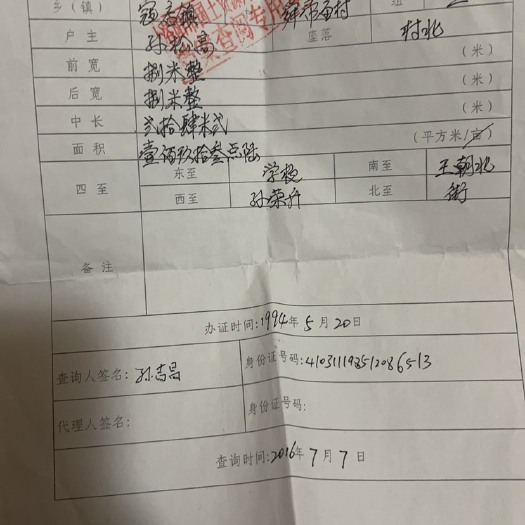 乡（镇） 寇店镇 村 组
户主 孙松高 座落 村北
前宽 捌米整 （米）
后宽 捌米整 （米）
中长 贰拾肆米贰 （米）
面积 壹佰玖拾叁点陆 （平方米/亩）
四至 东至 学校 南至 王朝北
西至 孙荣升 北至 街
备注
办证时间:1994年5月20日
查询人签名: 孙志昌 身份证号码:
代理人签名: 身份证号码:
查询时间:2016年7月7日